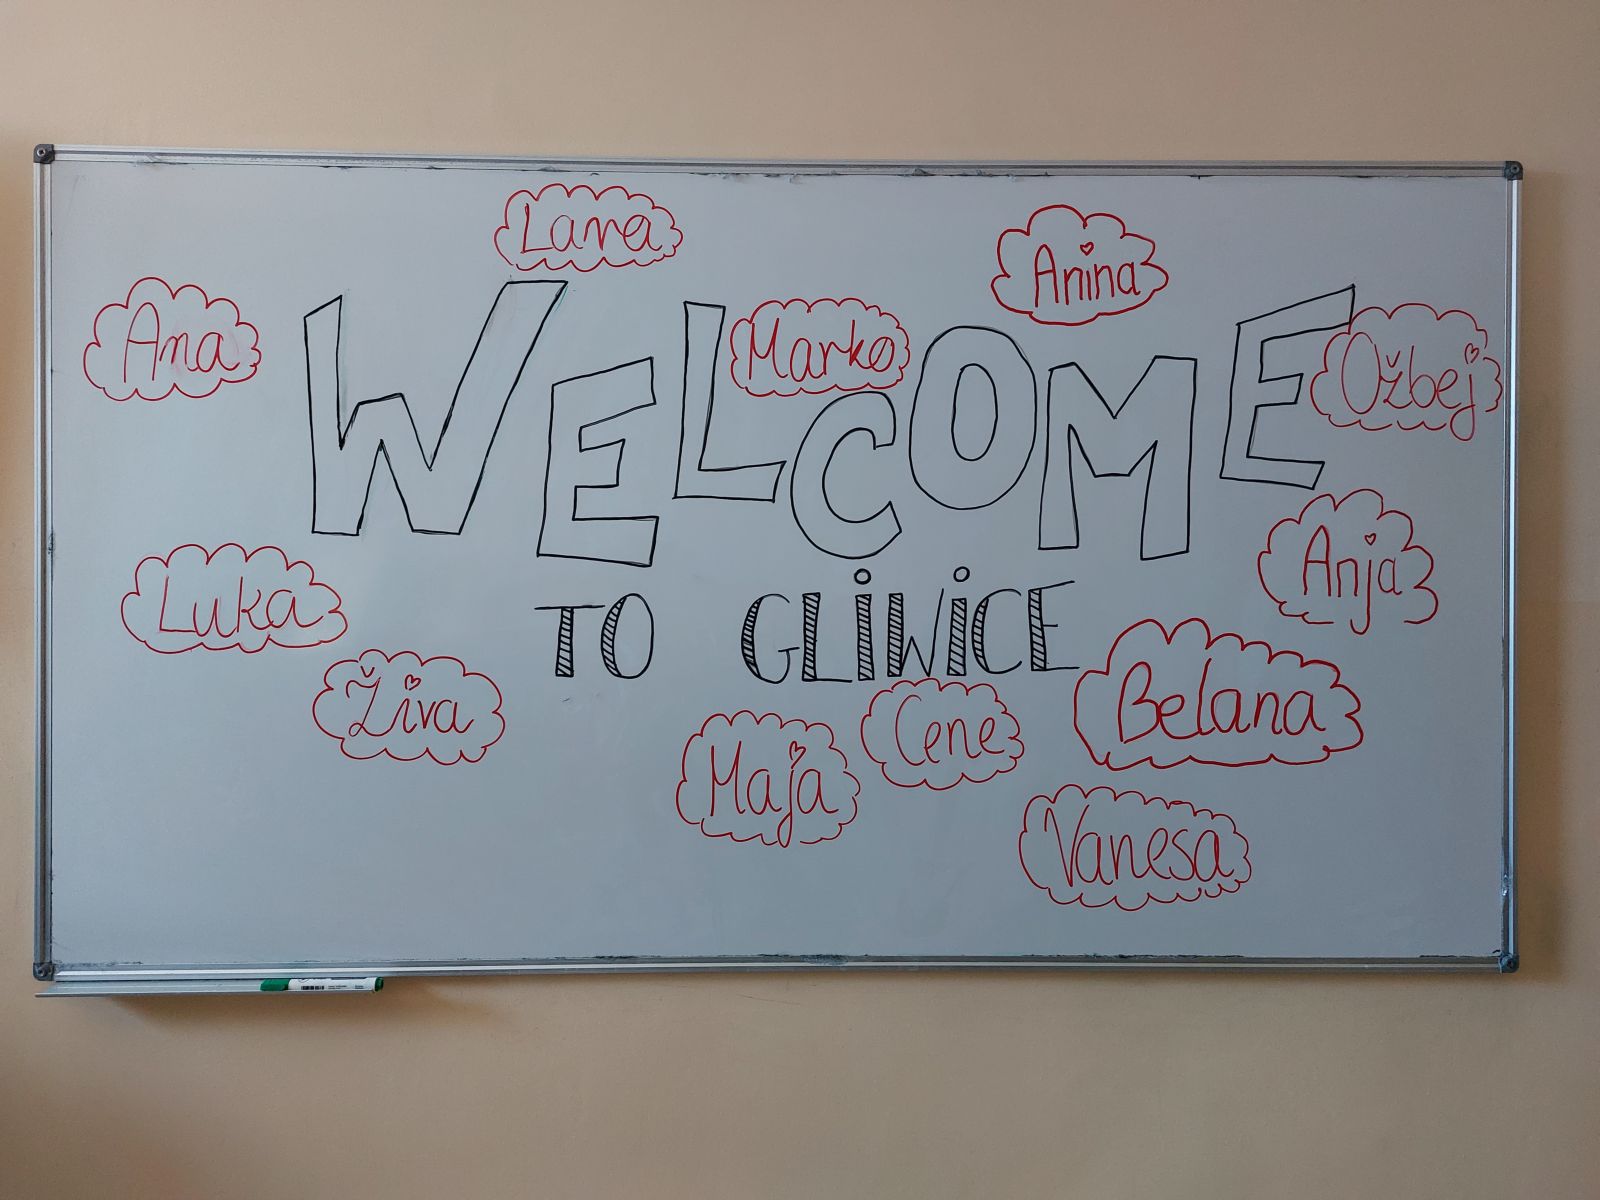 Lara
Anina
Ana
Marko
Ožbej
WELCOME
Anja
Luka
TO GLIWICE
Živa
Belana
Cene
Maja
Vanesa